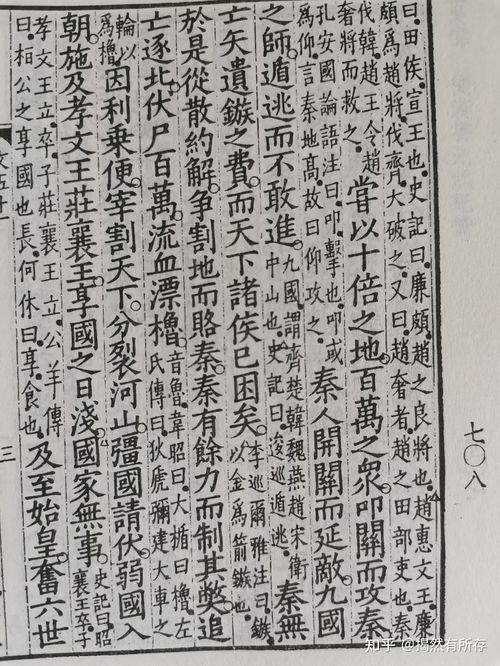 七〇八
曰田侯宣王也史記曰廉頗趙之良將也趙惠文王廉
頗為趙將伐齊大破之又曰趙奢者趙之田部吏也秦
伐韓趙王令趙
奢將而救之
嘗以十倍之地百萬之衆叩關而攻秦
孔安國論語注曰叩擊也叩或
為仰言秦地高故曰仰攻之
秦人開關而延敵九國
之師遁逃而不敢進
九國謂齊楚韓魏燕趙宋衛
中山也史記曰逡巡遁逃
秦無
亡矢遺鏃之費而天下諸侯已困矣
李巡爾雅注曰鏃
以金為箭鏃也
於是從散約解争割地而賂秦秦有餘力而制其獘追
亡逐北伏尸百萬流血漂櫓
音魯韋昭曰大楯曰櫓左
氏傳曰狄虒彌建大車之
輪以
為櫓
因利乘便宰割天下分裂河山彊國請伏弱國入
朝施及孝文王莊襄王享國之日淺國家無事
史記曰昭
襄王卒子
孝文王立卒子莊襄王立公羊傳
曰相公之享國也長何休曰享食也
及至始皇奮六世
三
知乎 @揭然有所存